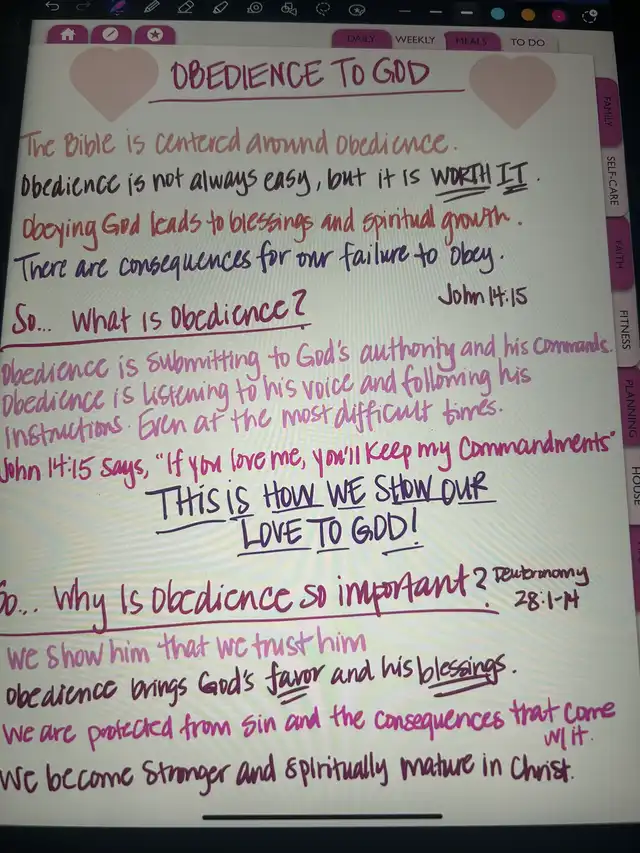 DAILY WEEKLY MEALS TO DO
OBEDIENCE TO GOD
The Bible is centered around Obedience.
Obedience is not always easy, but it is WORTH IT.
Obeying God leads to blessings and spiritual growth.
There are consequences for our failure to obey.
John 14:15
So... What is Obedience?
Obedience is submitting to God's authority and his commands.
Obedience is listening to his voice and following his
instructions. Even at the most difficult times.
John 14:15 says, "If you love me, you'll keep my commandments"
THIS IS HOW WE SHOW OUR
LOVE TO GOD!
So... Why Is Obedience so important?
Deutronomy
28:1-14
We show him that we trust him
Obedience brings God's favor and his blessings.
We are protected from sin and the consequences that come
w/ it.
We become stronger and spiritually mature in Christ.
FAMILY
SELF-CARE
FAITH
FITNESS
PLANNING
HOUSE